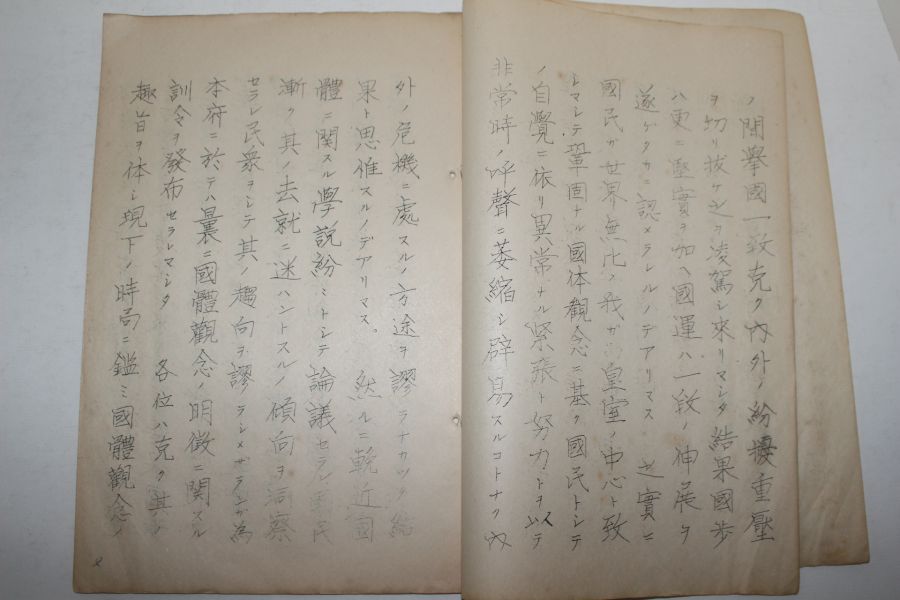 ノ間擧國一致克ク內外ノ紛擾重壓
ヲ切リ拔ケ之ヲ凌駕シ來リマシタ結果國步
ハ更ニ堅實ヲ加ヘ國運ハ一段ノ伸展ヲ
遂ゲタカニ認メラレルノデアリマス 之實ニ
國民ガ世界無比ノ我ガ皇室ノ中心ト致
シマシテ鞏固ナル國体觀念ニ基ク國民トシテ
ノ自覺ニ依リ異常ナル緊張ト努力トヲ以テ
非常時ノ呼聲ニ萎縮シ辟易スルコトナク內
外ノ危機ニ處スルノ方途ヲ謬ラナカツタ結
果ト思惟スルノデアリマス。 然ルニ輓近國
體ニ関スル學說紛ミトシテ論議セラレ國民
漸ク其ノ去就ニ迷ハントスルノ傾向ヲ洞察
セラレ民衆ヲシテ其ノ趨向ヲ謬ラシメザランガ為
本府ニ於テハ曩ニ國體觀念ノ明徵ニ関スル
訓令ヲ發布セラレマシタ 各位ハ克ク其ノ
趣旨ヲ体シ現下ノ時局ニ鑑ミ國體觀念ノ